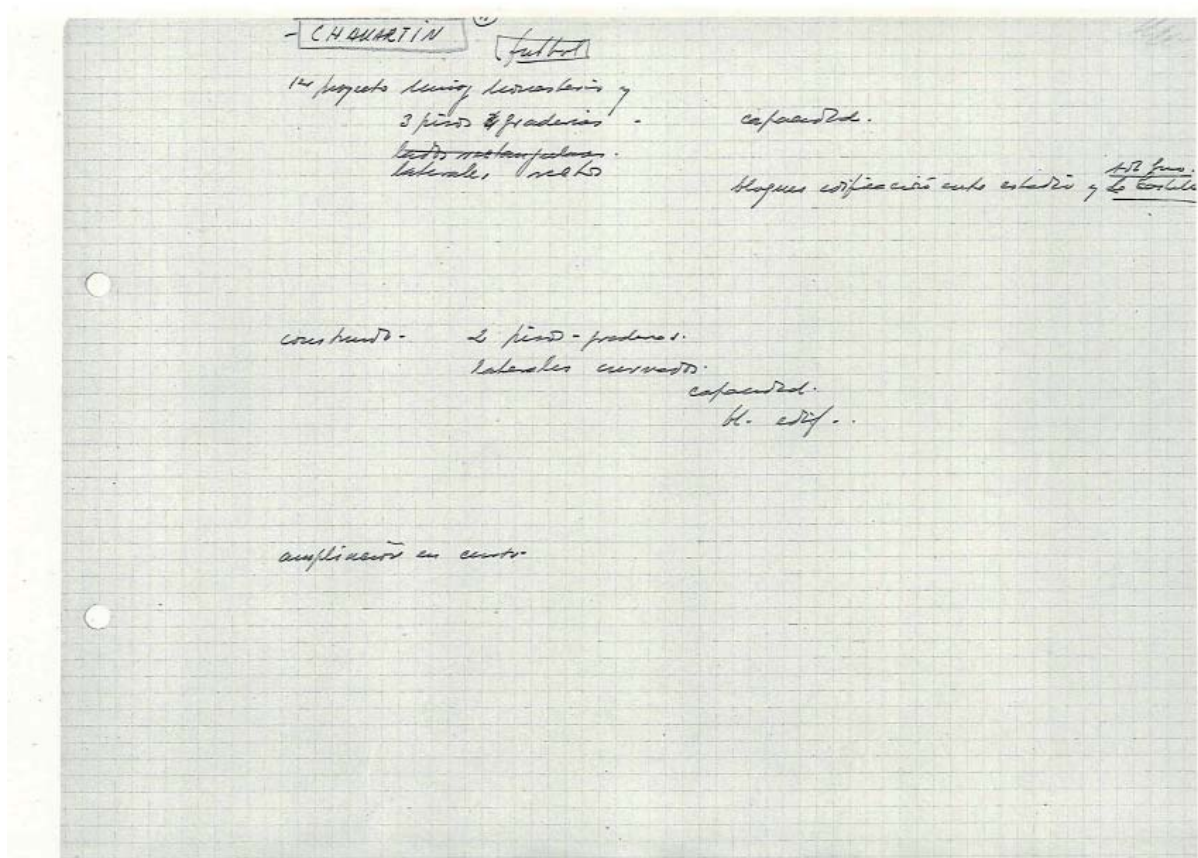 - CHAMARTÍN
futbol
1er proyecto Muñoz Monasterio y
3 pisos graderias - capacidad.
lados rectangulares.
laterales rectos
bloques edificación entre estadio y la Castella
construido - 2 pisos - graderas.
laterales curvados.
capacidad.
bl. edif..
ampliación en curso